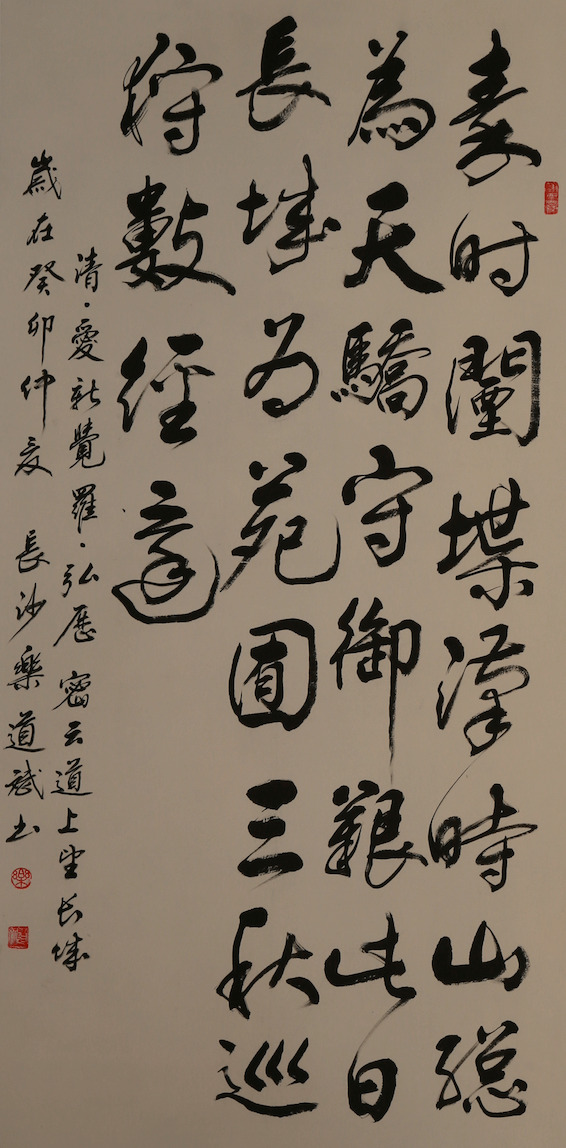 秦时闉堞漢時山總
為天驕守御艱此日
長城为苑囿三秋巡
狩數經還
清·愛新覺羅·弘歷 密云道上望长城
歲在癸卯仲夏 長沙樂道斌书